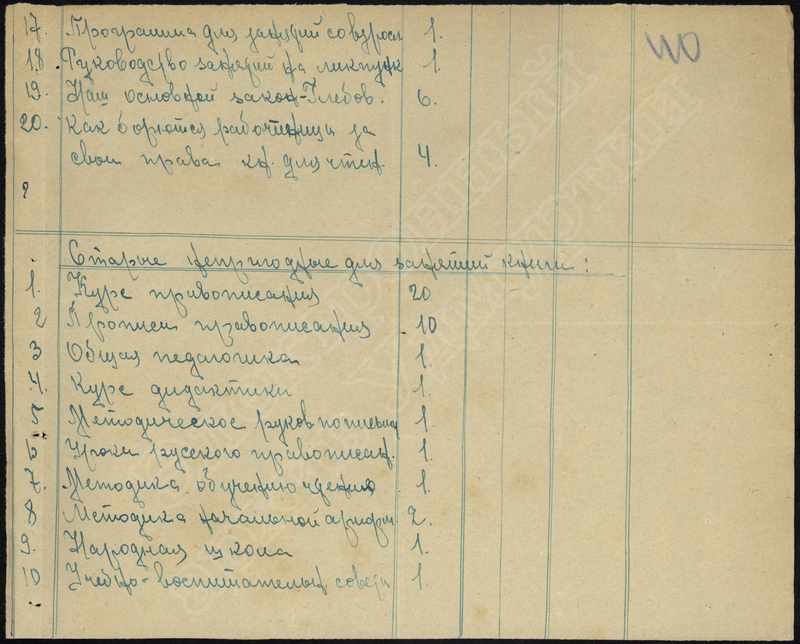 17. Программа для занятий со взросл 1.
40
18. Руководство занятий на ликпунк 1.
19. Наш основной закон-Глебов. 6.
20. Как борются работницы за
свои права кн. для чтен. 4.
Старые непригодные для занятий книги:
1. Курс правописания 20
2 Прописи правописания 10
3 Общая педагогика 1.
4. Курс дидактики 1.
5 Методическое руков по письму 1.
6 Уроки русского правописан. 1.
7. Методика обучению чтения 1.
8 Методика начальной арифм 2.
9. Народная школа 1.
10 Учебно-воспитательн советы 1.